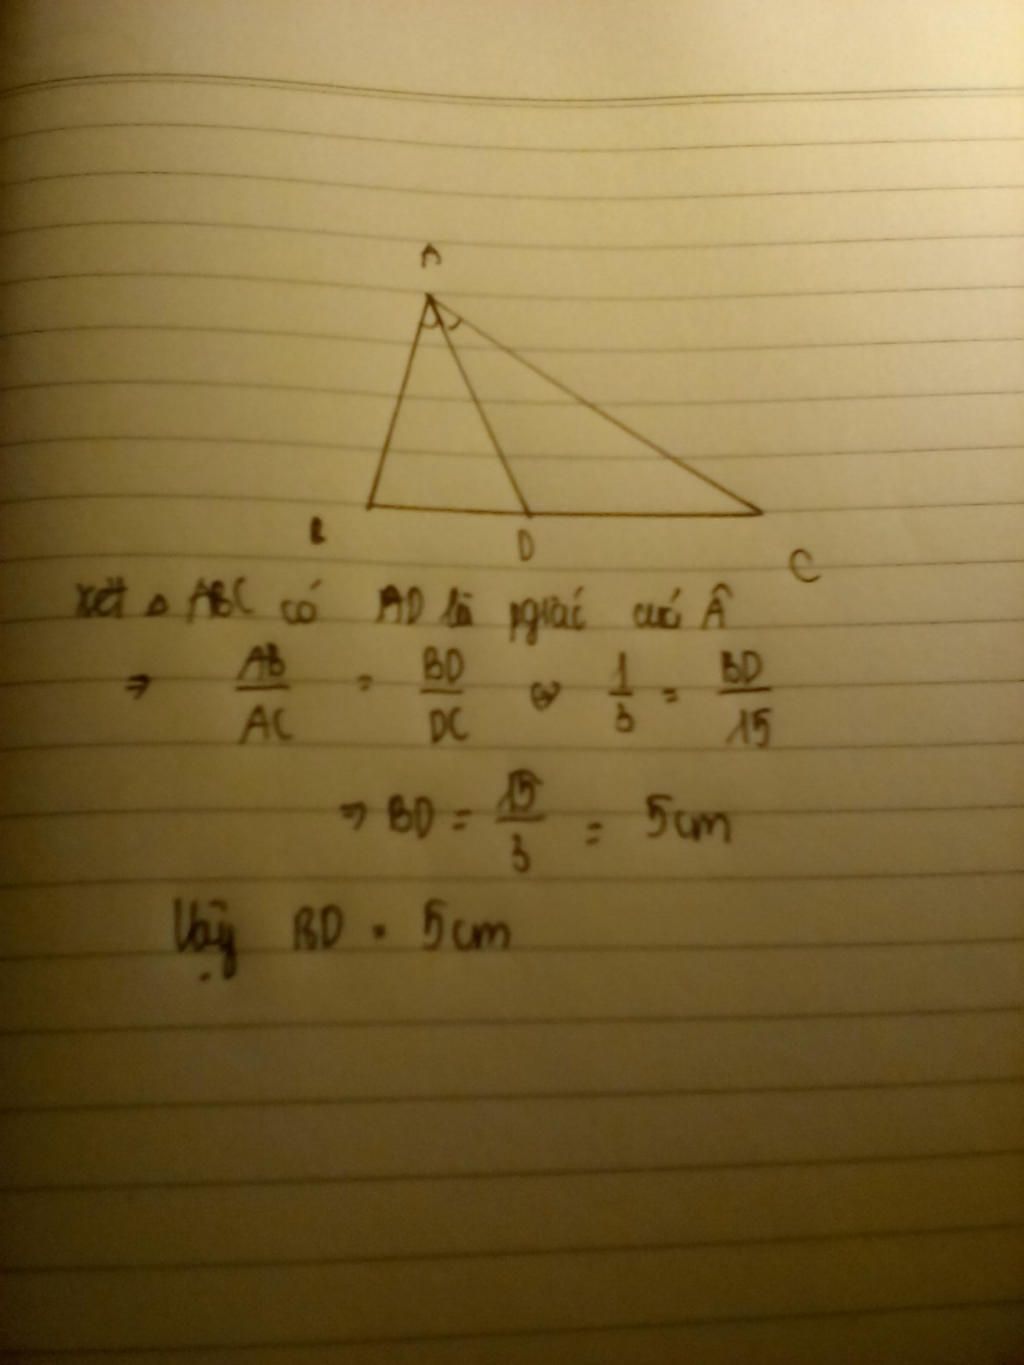 A
B D C
xét △ ABC có AD là pgiác củá Â
⇒ AB/AC = BD/DC ⇔ 1/3 = BD/15
⇒ BD = 15/3 = 5cm
Vậy BD = 5cm